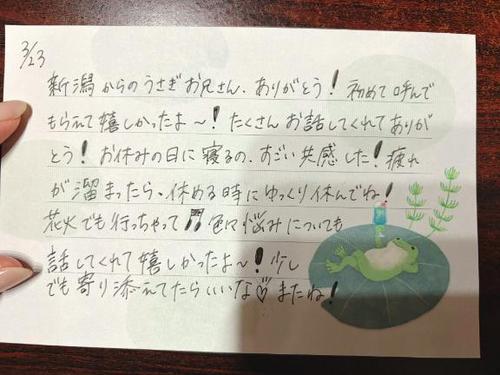 3/23
新潟からのうさぎお兄さん、ありがとう！初めて呼んで
もらえて嬉しかったよ〜！たくさんお話してくれてありが
とう！お休みの日に寝るの、すごい共感した！疲れ
が溜まったら、休める時にゆっくり休んでね！
花火でも行っちゃって♬色々悩みについても
話してくれて嬉しかったよ〜！少し
でも寄り添えてたらいいな♡またね！